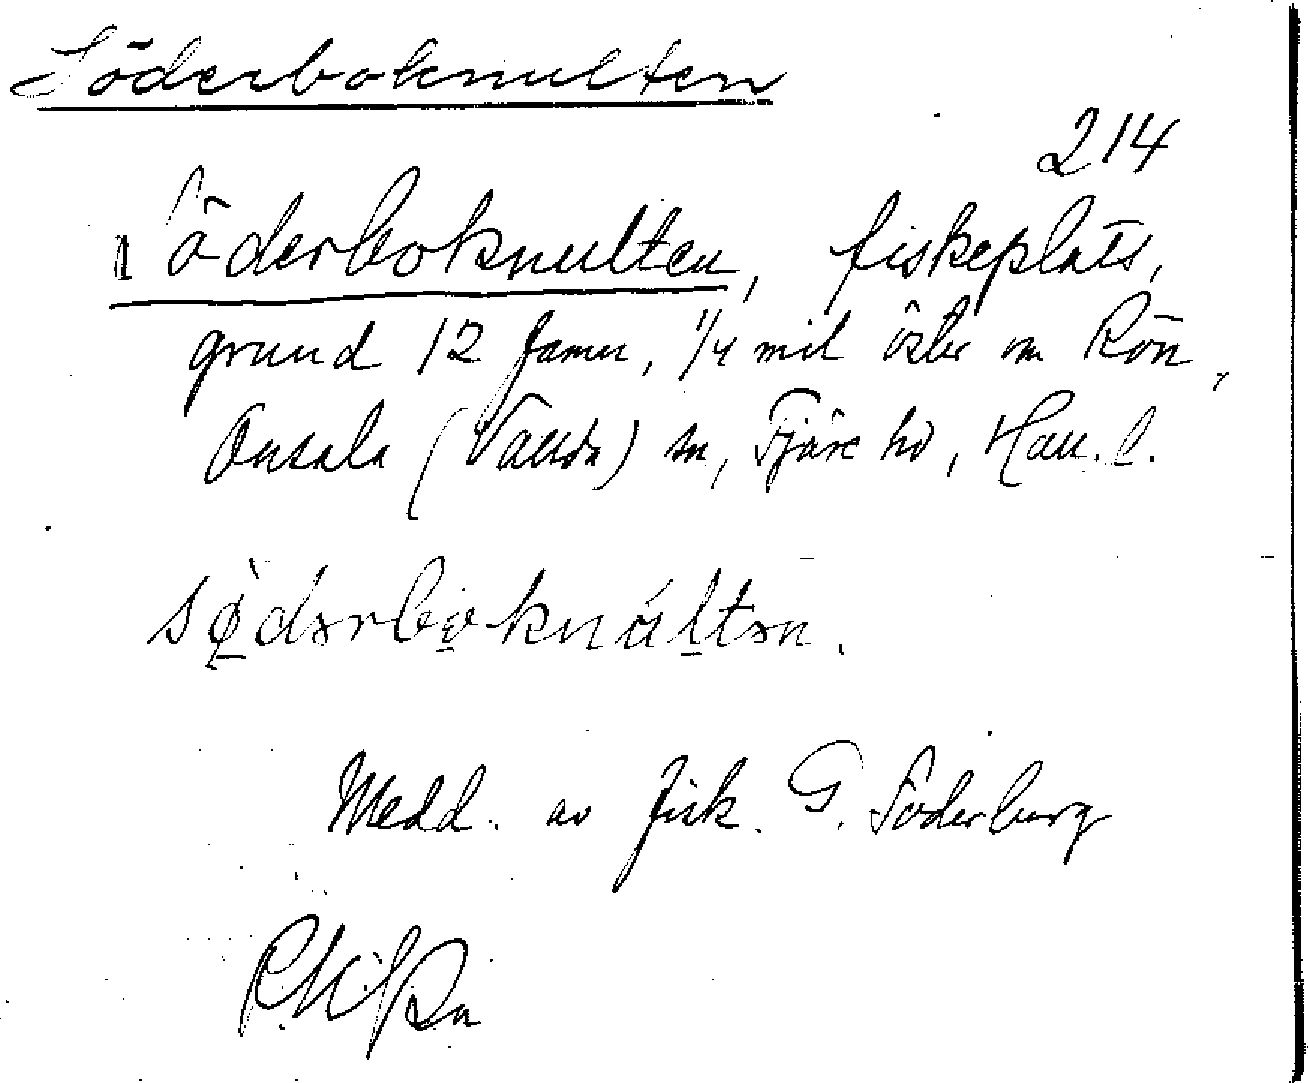 Söderboknulten
214
Söderboknulten, fiskeplats,
grund 12 famn, 1/4 mil öster om Rön,
Onsala (Vallda) sn, Fjäre hd, Hall. l.
sødərboknúltən.
Medd. av fisk. G. Söderberg